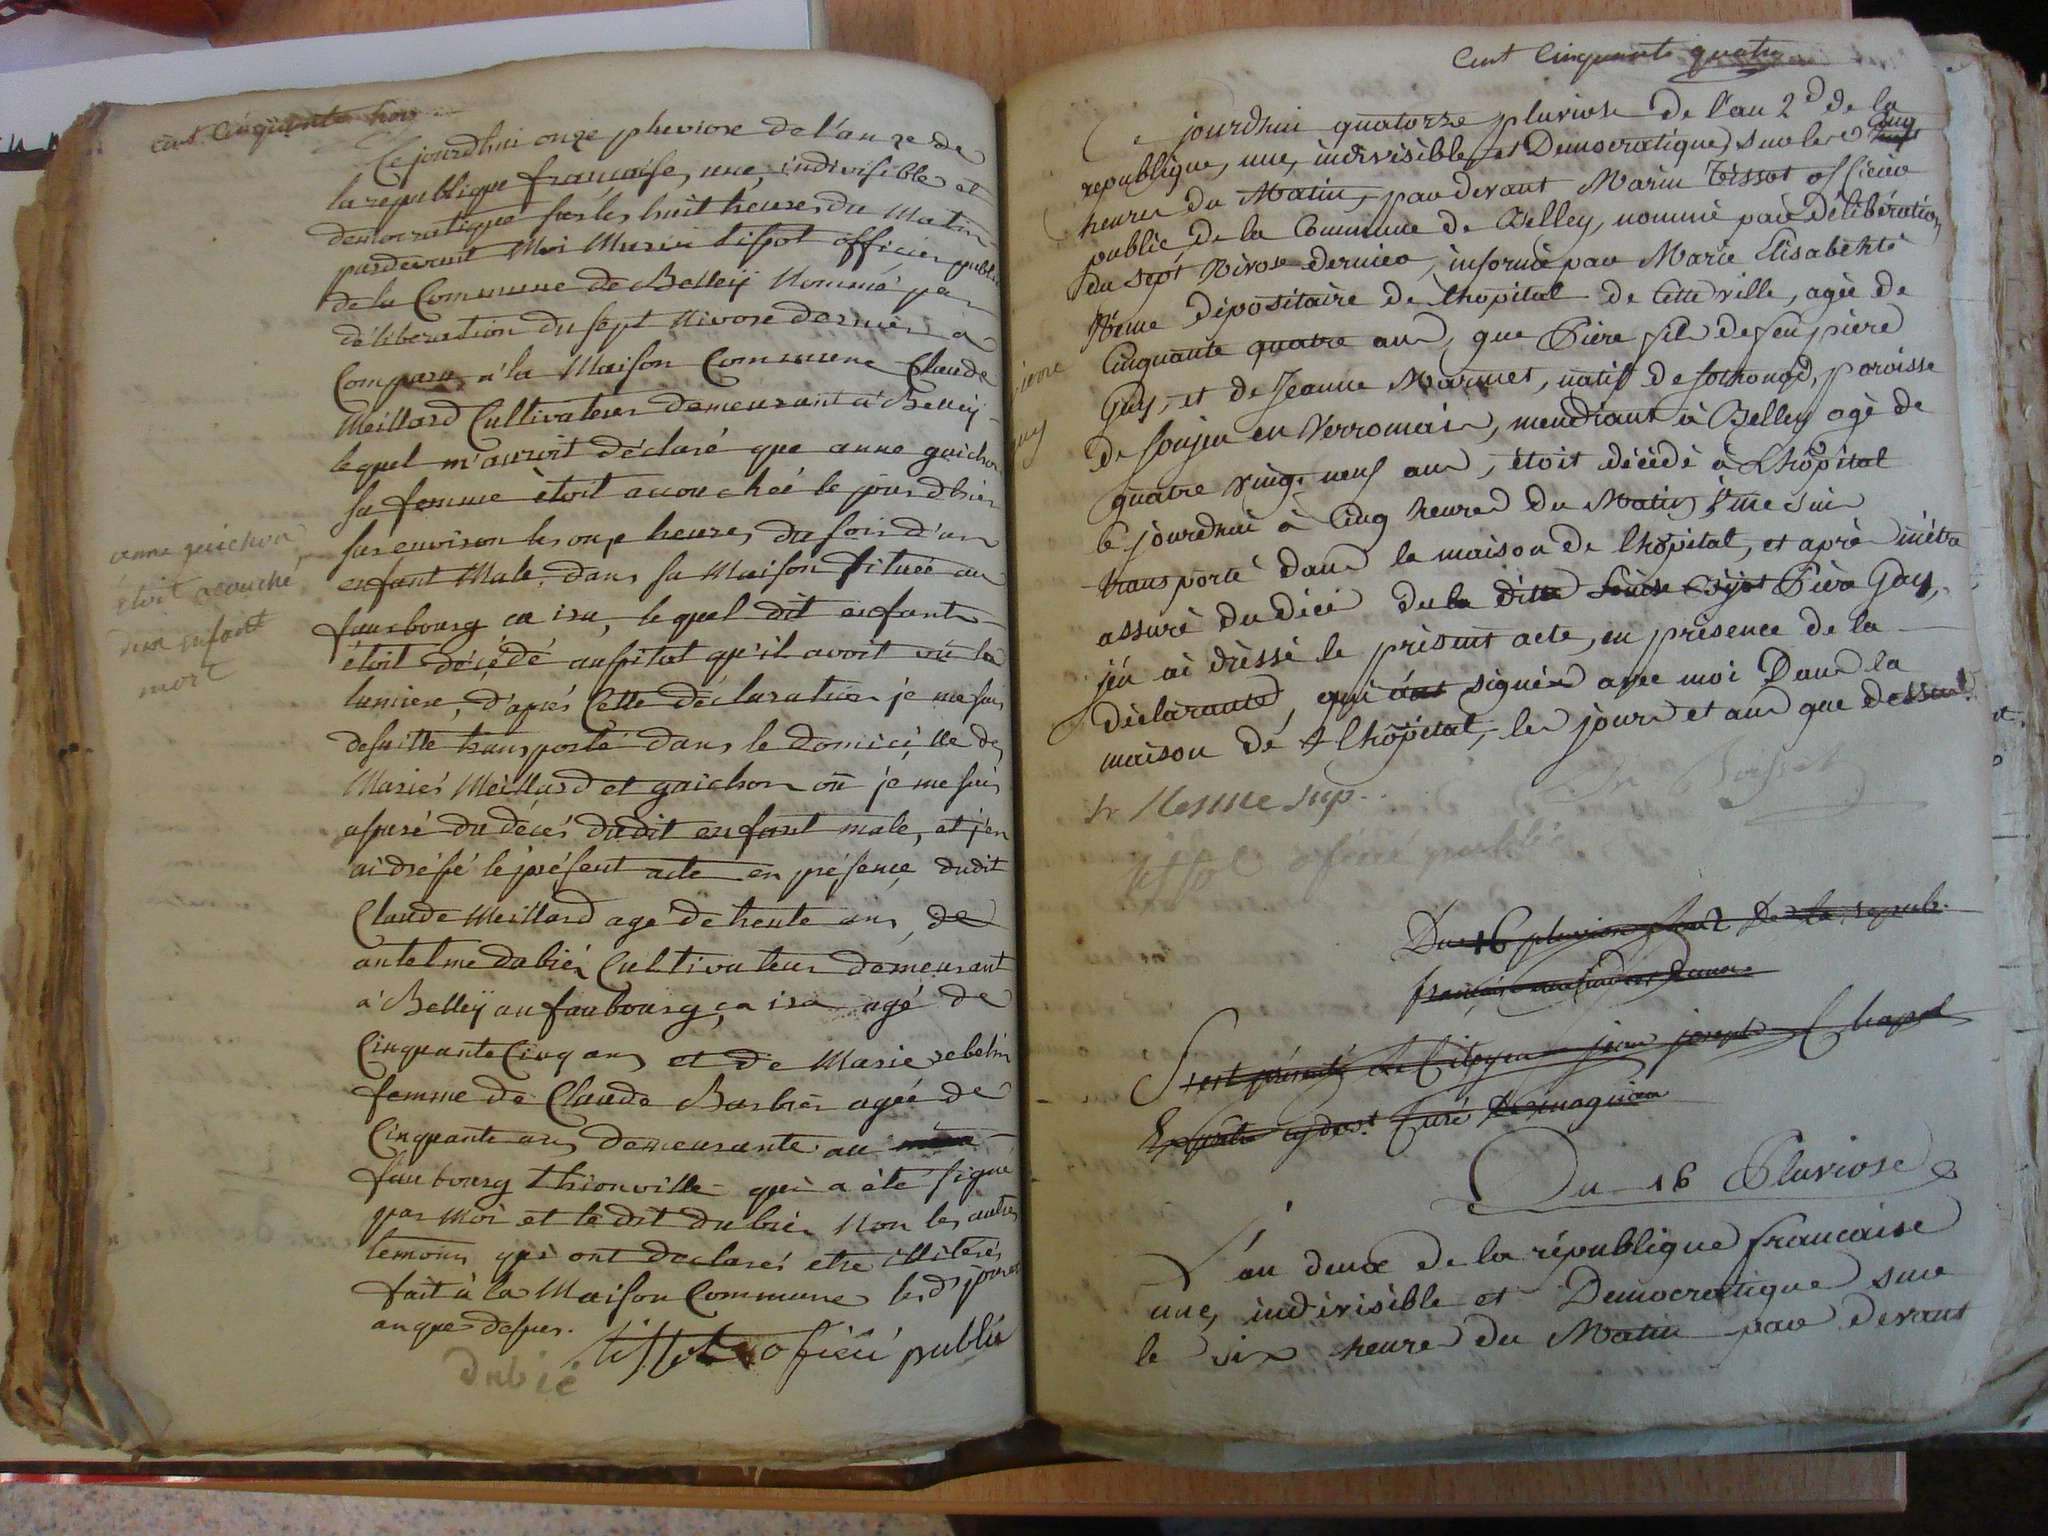 cent cinquante trois
Ce jourdhui onze pluviose de l'an 2e de
la republique francaise, une, indivisible et
democratique sur les huit heures du matin
pardevant moi Marin tissot officier public
de la Commune de Belleÿ nommé par
déliberation du sept nivose dernier à
Comparu à la Maison Commune Claude
Meillard Cultivateur demeurant à Belleÿ
lequel m'auroit déclaré que anne guichon
sa femme étoit accouchée le jourdhier
sur environ les onze heures du soir d'un
enfant Male, dans sa Maison située au
fauxbourg ça ira, lequel dit enfant
étoit décédé aussitot qu'il avoit vû la
lumiere, d'après Cette déclaration je me suis
desuitte transporté dans le domicille des
Mariés Meillard et guichon où je me suis
assuré du décés dudit enfant male, et j'en
ai dressé le présent acte en présence dudit
Claude Meillard agé de trente ans, de
antelme dubié Cultivateur demeurant
à Belleÿ au faubourg ça ira agé de
Cinquante Cinq ans et de Marie rebelin
femme de Claude Barbier agée de
Cinquante ans demeurante au
faubourg thionville qui a été signé
par moi et le dit dubié non les autres
temoins qui ont declarés etre illiterés
fait à la Maison Commune lesd jours et
an que dessus.
dubié tissot oficié publié
anne guichon
étoit acouché
deux enfant
mort
cent cinquante quatre
Ce jourdhui quatorze pluviose de l'an 2d de la
republique, une, indivisible et Democratique, sur les cinq
heures du Matin, par devant Marin Tissot officier
public de la Commune de Belley, nommé par délibération
du sept Nivose dernier, informé par Marie Elisabehte
Neme dépositaire de l'hopital de Cette ville, agée de
Cinquante quatre ans, que Piere fils de feu piere
Guy, et de Jeanne Marmet, natif de fothonod, paroisse
de songieu en Verromais, mendiant à Belley agé de
quatre vingt neuf ans, étoit décédé à L'hôpital
ce jourdhui à Cinq heures du Matin je me suis
transporté dans la maison de l'hopital, et après m'étre
assuré du décé du la ditte Piere Guy,
j'en ai dressé le présent acte, en présence de la
déclarante, qui signée avec moi Dans la
maison de l'hopital, les jours et ans que dessus.
pierre
guy
sr Nesme sup.
tissot oficié publié
Du 16 pluviose l'an 2 de la repub.
S'est présenté le Citoyen jean joseph Chapel
cydevt Curé
Du 16 Pluviose
L'an deux de la république francaise
une, indivisible et Democratique sur
le six heure du Matin par devant